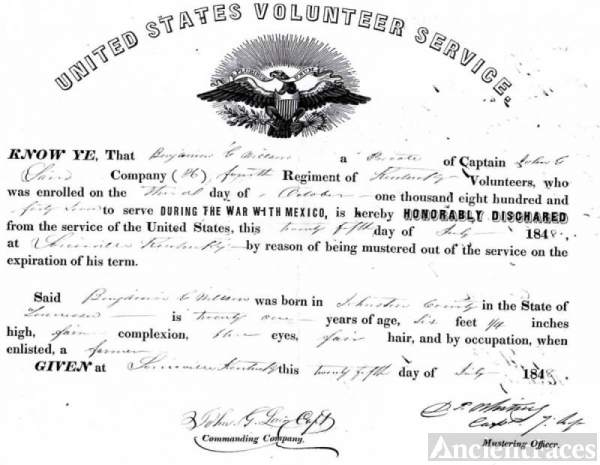 UNITED STATES VOLUNTEER SERVICE,
KNOW YE, That Benjamin C Willson a Private of Captain John G
Company fourth Regiment of Kentucky Volunteers, who
was enrolled on the third day of October one thousand eight hundred and
to serve DURING THE WAR WITH MEXICO, is hereby HONORABLY DISCHARED
from the service of the United States, this twenty fifth day of July 1848,
at Louisville Kentucky by reason of being mustered out of the service on the
expiration of his term.
Said Benjamin C Willson was born in Johnston County in the State of
Tennessee is twenty one years of age, Six feet inches
high, fair complexion, blue eyes, fair hair, and by occupation, when
enlisted, a farmer
GIVEN at Louisville Kentucky this twenty fifth day of July 1848.
John G. Capt
Commanding Company.
Mustering Officer.
AncientFaces